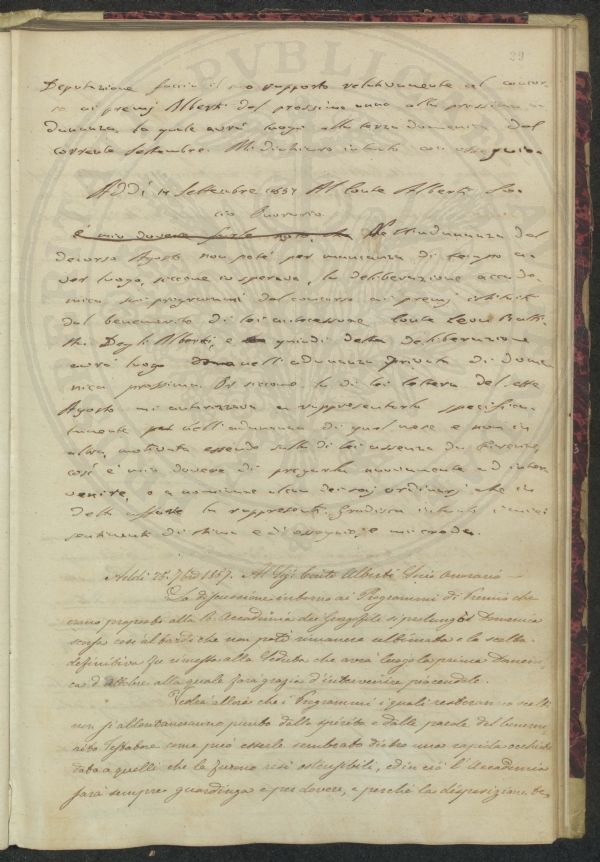 29
Deputazione faccia il suo rapporto relativamente al concor-
so ai premj Alberti del prossimo anno alla prossima a-
dunanza, la quale avrà luogo alla terza domenica del
corrente Settembre. Mi dichiaro intanto con ossequio.
Addì 14 Settembre 1857 Al Conte Alberti So-
cio Onorario
È mio dovere farle noto, che Nell'adunanza del
decorso Agosto non potè per mancanza di tempo a-
ver luogo, siccome si sperava, la deliberazione accade-
mica sui programmi del concorso ai premj istituiti
dal benemerito di lei antecessore Conte Leon Batti-
sta Degli Alberti, e quindi detta deliberazione
avrà luogo nell'adunanza privata di dome-
nica prossima. E siccome la di lei lettera del
Agosto mi autorizzava a rappresentarla specifica-
tamente nell'adunanza di quel mese e non in
altra, motivata essendo sulla di lei assenza da Firenze,
così è mio dovere di pregarla nuovamente ad inter-
venire, o a nominare alcun dei soci ordinarj che in
detto affare la rappresenti. Gradisca intanto i miei
sentimenti di stima e di ossequio, e mi creda.
Addi 25. 7bre 1857. Al Sig. Conte Alberti Socio Onorario
La discussione intorno ai Programmi di Premio che
erano proposti alla R. Accademia dei Georgofili si prolungò Domenica
scorsa così al tardi che non potè rimanere ultimata e la scelta
definitiva fu rimessa alla Seduta che avrà luogo la prima Domeni-
ca d'Ottobre alla quale farà grazia d'intervenire piacendole.
Vedrà allora che i Programmi i quali resteranno scelti
non si allontaneranno punto dallo spirito e dalle parole del beneme-
rito Testatore come può esserle sembrato dietro una rapida occhiata
data a quelli che le furono resi ostensibili, ed in ciò l'Accademia
sarà sempre guardinga e per dovere, e perchè la disposizione te-